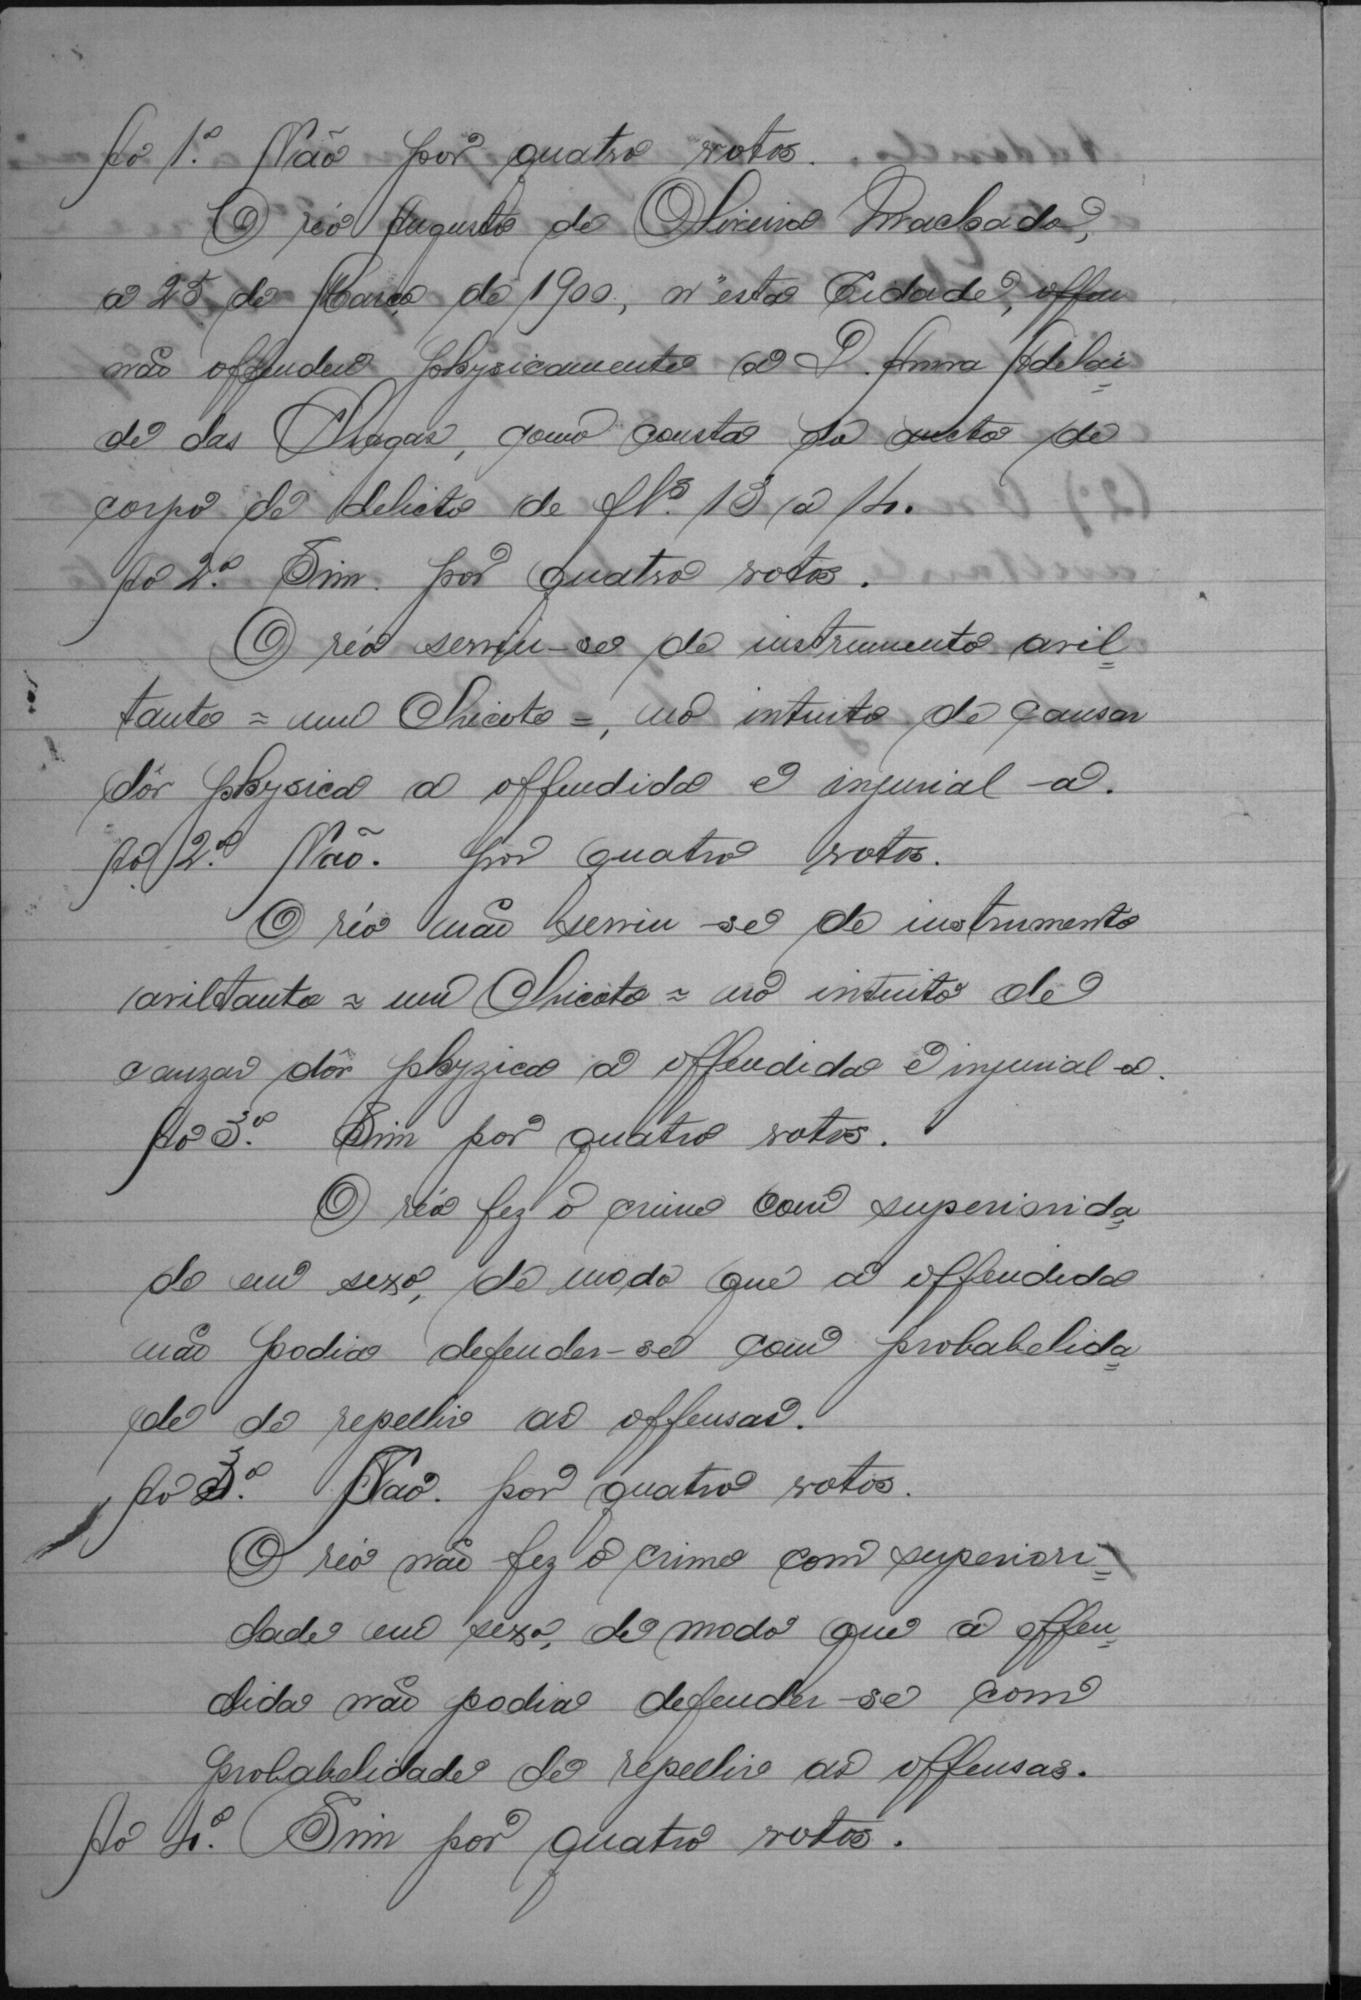 Ao 1.º Não por quatro votos.
O réo Augusto de Oliveira Machado,
a 25 de Março de 1900, n'esta Cidade, offen
não offendeu physicamente a D. Anna Adelai=
de das Chagas, como consta do aucto de
corpo de delicto de fls. 13 a 14.
Ao 2.º Sim. por quatro votos.
O réo serviu-se de instrumento avil=
tante = um Chicote =, no intuito de causar
dôr physica a offendida e injurial-a.
Ao 2.º Não. por quatro votos.
O réo não serviu-se de instrumento
aviltante = um Chicote = no intuito de
cauzar dôr phyzica a offendida e injurial-a.
Ao 3.º Sim por quatro votos.
O réo fez o crime com superiorida=
de em sexo, de modo que a offendida
não podia defender-se com probabelida=
de de repellir as offensas.
Ao 3.º Não. por quatro votos.
O réo não fez o crime com superiori=
dade em sexo, de modo que a offen=
dida não podia defender-se com
probabelidade de repellir as offensas.
Ao 4.º Sim por quatro votos.